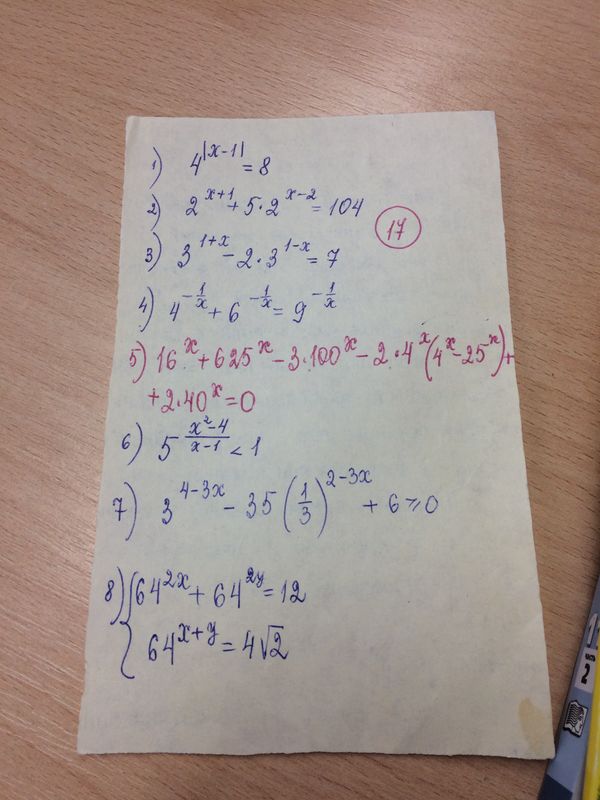 1) 4^{|x-1|} = 8
2) 2^{x+1} + 5·2^{x-2} = 104
17
3) 3^{1+x} - 2·3^{1-x} = 7
4) 4^{-\frac{1}{x}} + 6^{-\frac{1}{x}} = 9^{-\frac{1}{x}}
5) 16^x + 625^x - 3·100^x - 2·4^x(4^x - 25^x) +
+ 2·40^x = 0
6) 5^{\frac{x^2-4}{x-1}} < 1
7) 3^{4-3x} - 35(\frac{1}{3})^{2-3x} + 6 ≥ 0
8) { 64^{2x} + 64^{2y} = 12
64^{x+y} = 4√2
часть
2